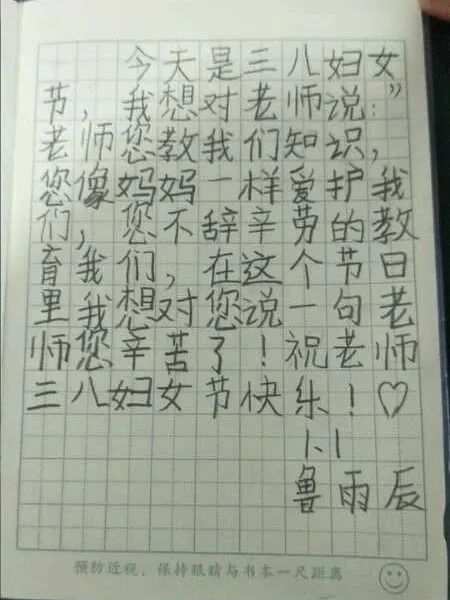 今天是三八妇女
节，我想对老师说：”
老师您教我们知识，
您像妈妈一样爱护我
们，您不辞辛劳的教
育我们，在这个节日
里我想对您说一句老
师您辛苦了！祝老师
三八妇女节快乐！♡
1.1
鲁雨辰
预防近视，保持眼睛与书本一尺距离